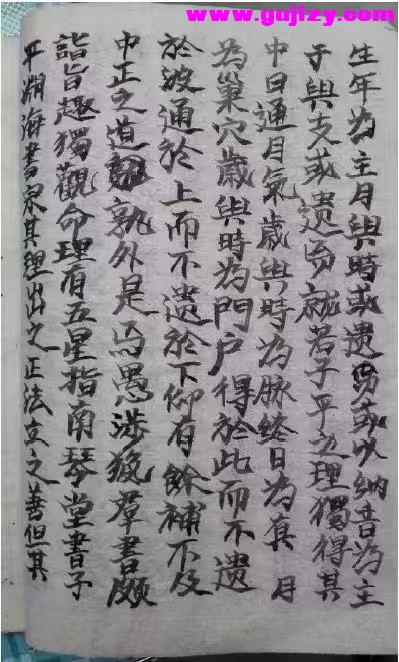 www.gujizy.com
生年為主月與時或遗或以納音為主
于與支或遗就若子平之理獨得其
中日通月氣歲與時為脉終日為真月
為巢穴歲與時為門户得於此而不遗
於波通於上而不遗於下仰有餘補不及
中正之道孰外是焉愚涉羣書颇
詣旨趣獨觀命理有五星指南琴堂書子
平渊海書其理出之正法立之善但其